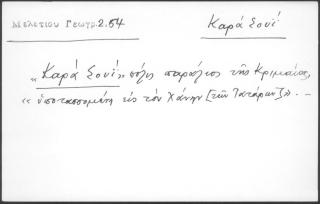 Μελετίου Γεωγρ. 2.54
Καρά Σουΐ
«Καρά Σουΐ» πόλις παράλιος τῆς Κριμαίας,
«ὑποτασσομένη εἰς τὸν Χάνην [τῶν Τατάρων]». –